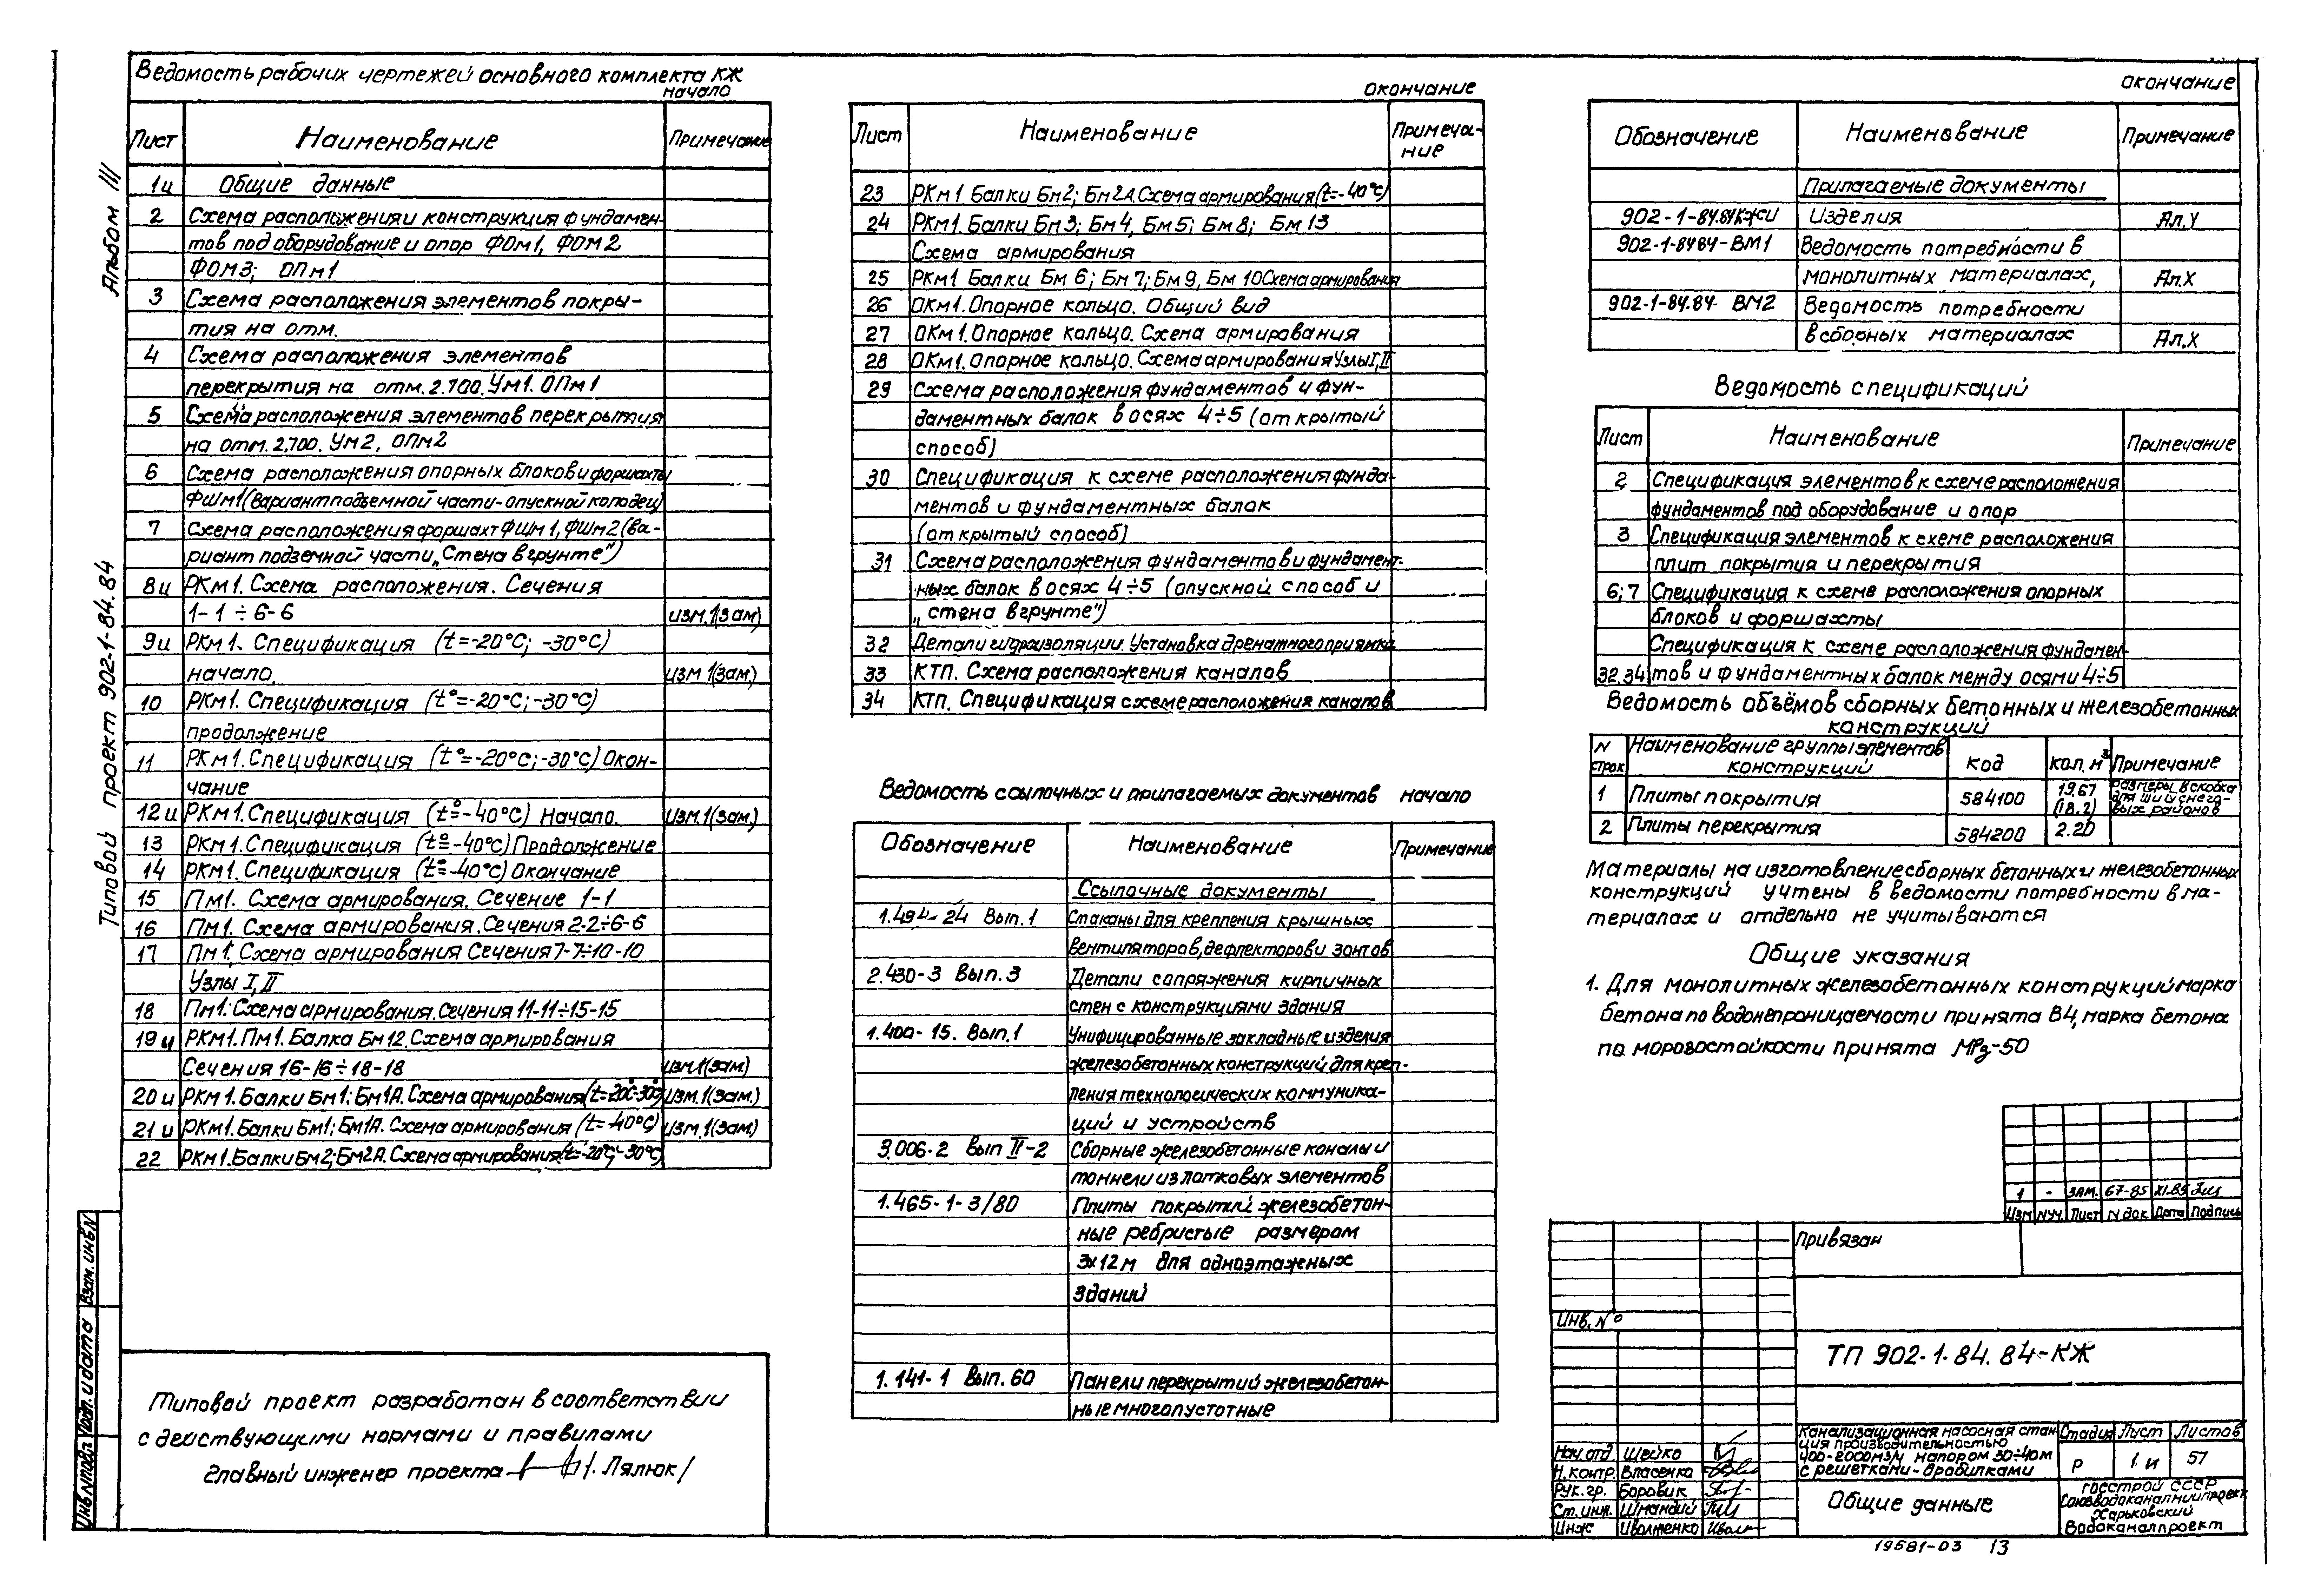 Альбом III
Типовой проект 902-1-84.84
Ведомость рабочих чертежей основного комплекта КЖ
начало
Лист Наименование Примечание
1и Общие данные
2 Схема расположения и конструкция фундамен-
тов под оборудование и опор ФОм1, ФОм2
ФОм3; ОПм1
3 Схема расположения элементов покры-
тия на отм.
4 Схема расположения элементов
перекрытия на отм. 2.700. Ум1. ОПм1
5 Схема расположения элементов перекрытия
на отм. 2,700. Ум2, ОПм2
6 Схема расположения опорных блоков и форшахты
ФШм1 (Вариант подземной части-опускной колодец)
7 Схема расположения форшахт ФШм1, ФШм2 (ва-
риант подземной части „Стена в грунте")
8и РКм1. Схема расположения. Сечения
1-1 ÷ 6-6 изм.1(зам)
9и РКм1. Спецификация (t=-20°С; -30°С)
начало. изм 1(зам.)
10 РКм1. Спецификация (t°=-20°С; -30°С)
продолжение
11 РКм1. Спецификация (t°=-20°С; -30°С) Окон-
чание
12и РКм1. Спецификация (t°=-40°С) Начало. изм.1(зам.)
13 РКм1. Спецификация (t°=-40°С) Продолжение
14 РКм1. Спецификация (t°=-40°С) Окончание
15 Пм1. Схема армирования. Сечение 1-1
16 Пм1. Схема армирования. Сечения 2-2÷6-6
17 Пм1. Схема армирования Сечения 7-7÷10-10
Узлы I, II
18 Пм1. Схема армирования. Сечения 11-11÷15-15
19и РКм1. Пм1. Балка Бм12. Схема армирования
Сечения 16-16÷18-18 изм.1(зам.)
20и РКм1. Балки Бм1; Бм1А. Схема армирования (t=-20°С-30°С) изм.1(зам.)
21и РКм1. Балки Бм1; Бм1А. Схема армирования (t=-40°С) изм.1(зам)
22 РКм1. Балки Бм2; Бм2А. Схема армирования (t=-20°С; -30°С)
Типовой проект разработан в соответствии
с действующими нормами и правилами
Главный инженер проекта /. Лялюк/
Взам. инв N
Подп. и дата
Инв N подл
окончание
Лист Наименование Примеча-
ние
23 РКм1 Балки Бм2; Бм2А. Схема армирования (t=-40°С)
24 РКм1. Балки Бм3; Бм4, Бм5; Бм8; Бм13
Схема армирования
25 РКм1 Балки Бм6; Бм7; Бм9, Бм10 Схема армирования
26 ОКм1. Опорное кольцо. Общий вид
27 ОКм1. Опорное кольцо. Схема армирования
28 ОКм1. Опорное кольцо. Схема армирования Узлы I, II
29 Схема расположения фундаментов и фун-
даментных балок в осях 4÷5 (открытый
способ)
30 Спецификация к схеме расположения фунда-
ментов и фундаментных балок
(открытый способ)
31 Схема расположения фундаментов и фундамент-
ных балок в осях 4÷5 (опускной способ и
„стена в грунте")
32 Детали гидроизоляции. Установка дренажного приямка
33 КТП. Схема расположения каналов
34 КТП. Спецификация к схеме расположения каналов
Ведомость ссылочных и прилагаемых документов начало
Обозначение Наименование Примечание
Ссылочные документы
1.494-24 Вып.1 Стаканы для крепления крышных
вентиляторов, дефлекторов и зонтов
2.430-3 Вып.3 Детали сопряжения кирпичных
стен с конструкциями здания
1.400-15. Вып.1 Унифицированные закладные изделия
железобетонных конструкций для креп-
ления технологических коммуника-
ций и устройств
3.006-2 Вып II-2 Сборные железобетонные каналы и
тоннели из лотковых элементов
1.465-1-3/80 Плиты покрытий железобетон-
ные ребристые размером
3х12м для одноэтажных
зданий
1.141-1 Вып.60 Панели перекрытий железобетон-
ные многопустотные
окончание
Обозначение Наименование Примечание
Прилагаемые документы
902-1-84.84КЖИ Изделия Ал.V
902-1-84.84-ВМ1 Ведомость потребности в
монолитных материалах, Ал.X
902-1-84.84-ВМ2 Ведомость потребности
в сборных материалах Ал.X
Ведомость спецификаций
Лист Наименование Примечание
2 Спецификация элементов к схеме расположения
фундаментов под оборудование и опор
3 Спецификация элементов к схеме расположения
плит покрытия и перекрытия
6; 7 Спецификация к схеме расположения опорных
блоков и форшахты
Спецификация к схеме расположения фундамен-
32.34 тов и фундаментных балок между осями 4÷5
Ведомость объёмов сборных бетонных и железобетонных
конструкций
N строк Наименование группы элементов конструкций Код Кол. м³ Примечание
1 Плиты покрытия 584100 19.67 (18.2) размеры в скобках для ши и снего- вых районов
2 Плиты перекрытия 584200 2.20
Материалы на изготовление сборных бетонных и железобетонных
конструкций учтены в ведомости потребности в ма-
териалах и отдельно не учитываются
Общие указания
1. Для монолитных железобетонных конструкций марка
бетона по водонепроницаемости принята В4, марка бетона
по морозостойкости принята МРз-50
1 - зам. 67-85 XI.85
Изм N уч. Лист N док Дата Подпись
Привязан
Инв. N°
ТП 902-1-84.84-КЖ
Нач.отд. Шейко
Н.контр. Власенко
Рук.гр. Боровик
Ст.инж. Шмандий
Инж Иволженко
Канализационная насосная стан-
ция производительностью
400-2000м3/ч напором 30÷40м
с решетками-дробилками
Стадия Лист Листов
Р 1.и 57
Общие данные
Госстрой СССР
Союзводоканалниипроект
Харьковский
Водоканалпроект
19581-03 13